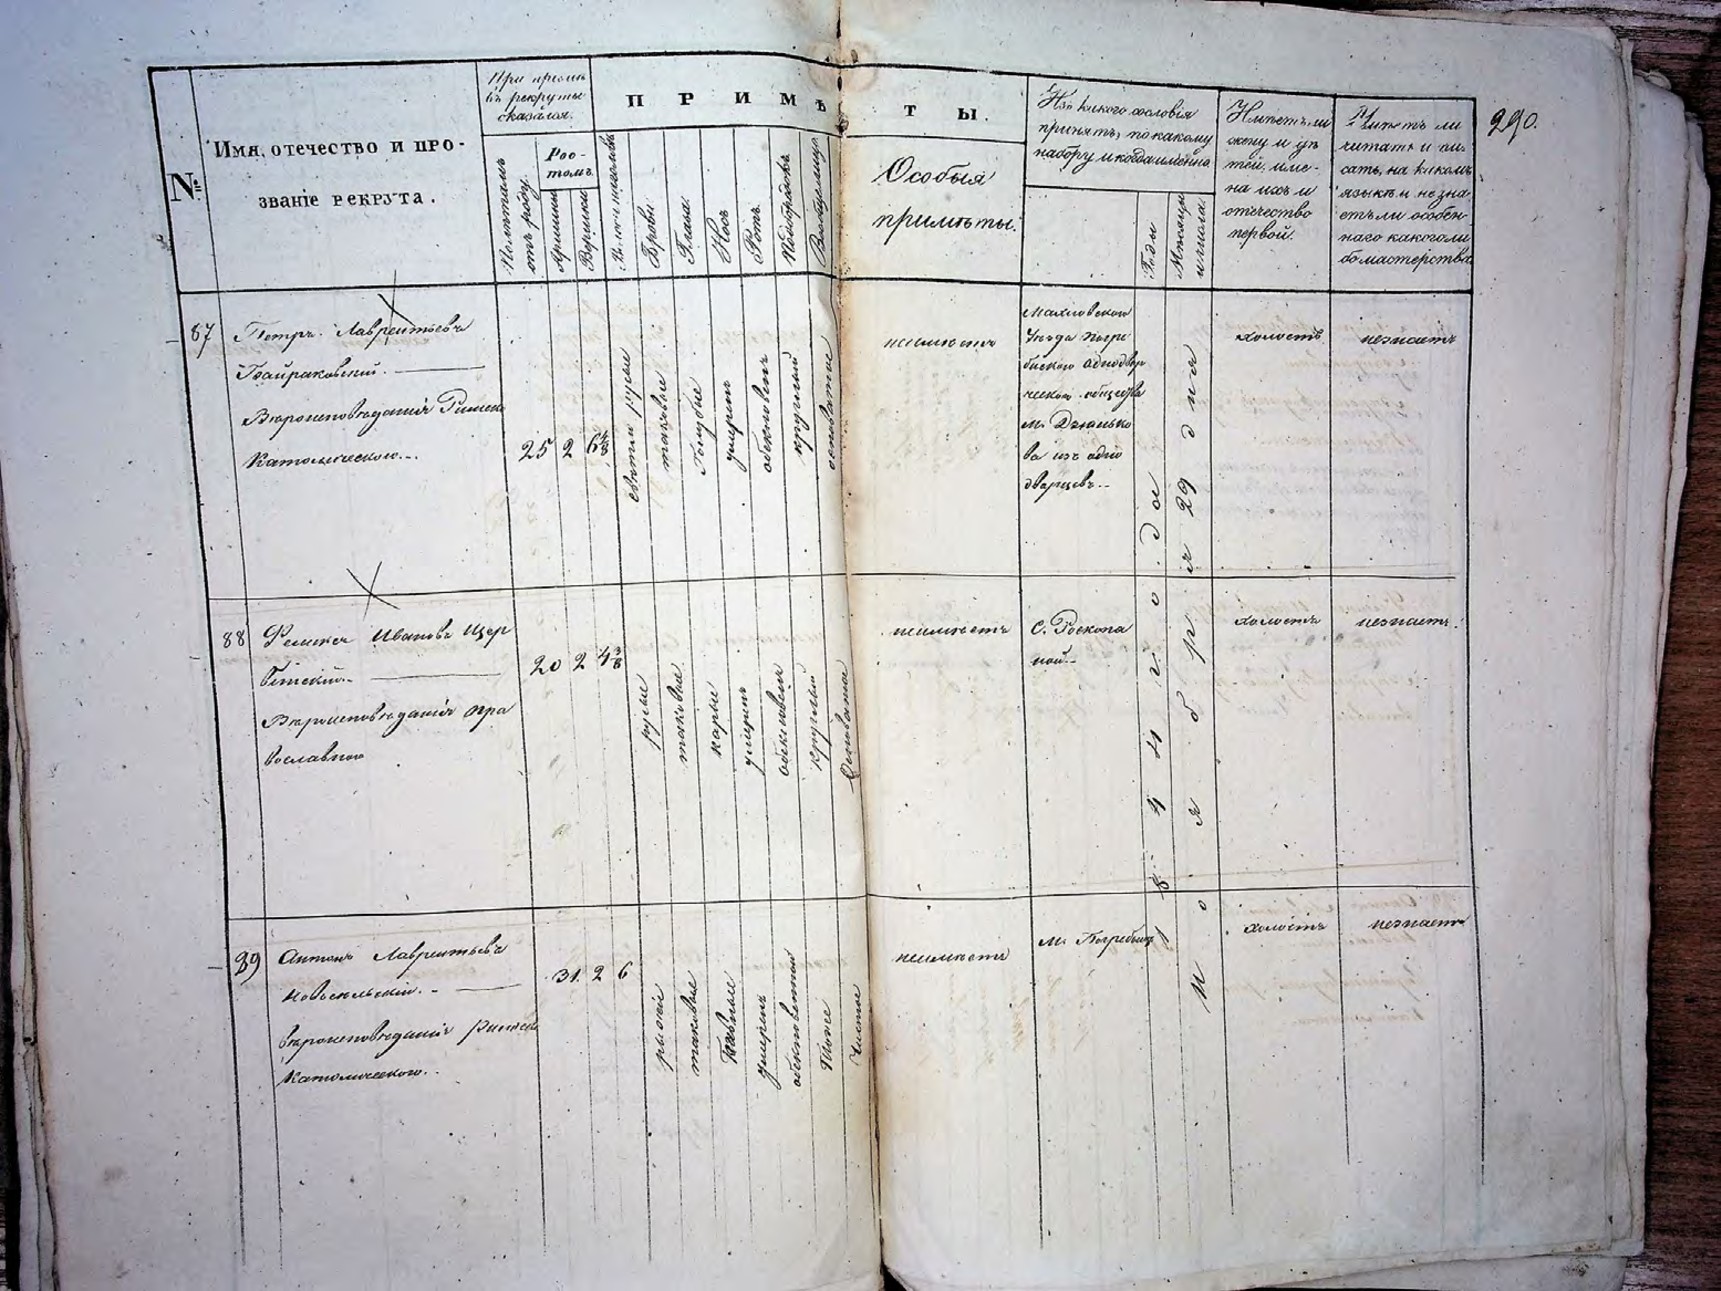 290.
№
Имя, отечество и про-
званіе рекрута.
При пріемѣ
въ рекруты
сказался.
Полѣтамъ
отъ роду
Рос-
томъ
Аршины
Вершки
ПРИМѢТЫ.
Брови
Глаза
Носъ
Ротъ
Подбородокъ
Вообще лицо
Особыя
примѣты.
Изъ какого сословія
принятъ, по какому
набору и когда именно
Годы
Мѣсяцы
и числа
Имѣетъ ли
жену и дѣ
тей, име-
на ихъ и
отечество
первой.
Имѣетъ ли
читать и пи-
сать, на какомъ
языкѣ и не зна-
етъ ли особен-
наго какого ли
бо мастерства
87
Петръ Лаврентьевъ
Байраковскій.
Вѣроисповѣданія Римско
Католического.
25
2
6 4/8
свѣтлорусые
таковые
Голубые
умѣрен
обыкновенъ
круглый
осповатое
неимѣетъ
Махновского
Уѣзда Погре
биского однодвор
ческого общества
м. Дзюнько
ва изъ одно
дворцевъ
1844 года
Ноября 29 дня
холостъ
незнаетъ
88
Феликсъ Ивановъ Щер
бінскій
Вѣроисповѣданія пра
вославного
20
2
4 3/8
русые
таковые
карые
умѣрен
обыкновен
круглый
Осповата
неимѣетъ
С. Роскопа
ной
холостъ
незнаетъ.
89
Антонъ Лаврентьевъ
Новосельскій.
вѣроисповѣданія Римско
Католического.
31.
2
6
рыжіе
таковые
умѣренъ
обыкновенный
Тоже
Чистое
неимѣетъ
м. Погребищ
холостъ
незнаетъ